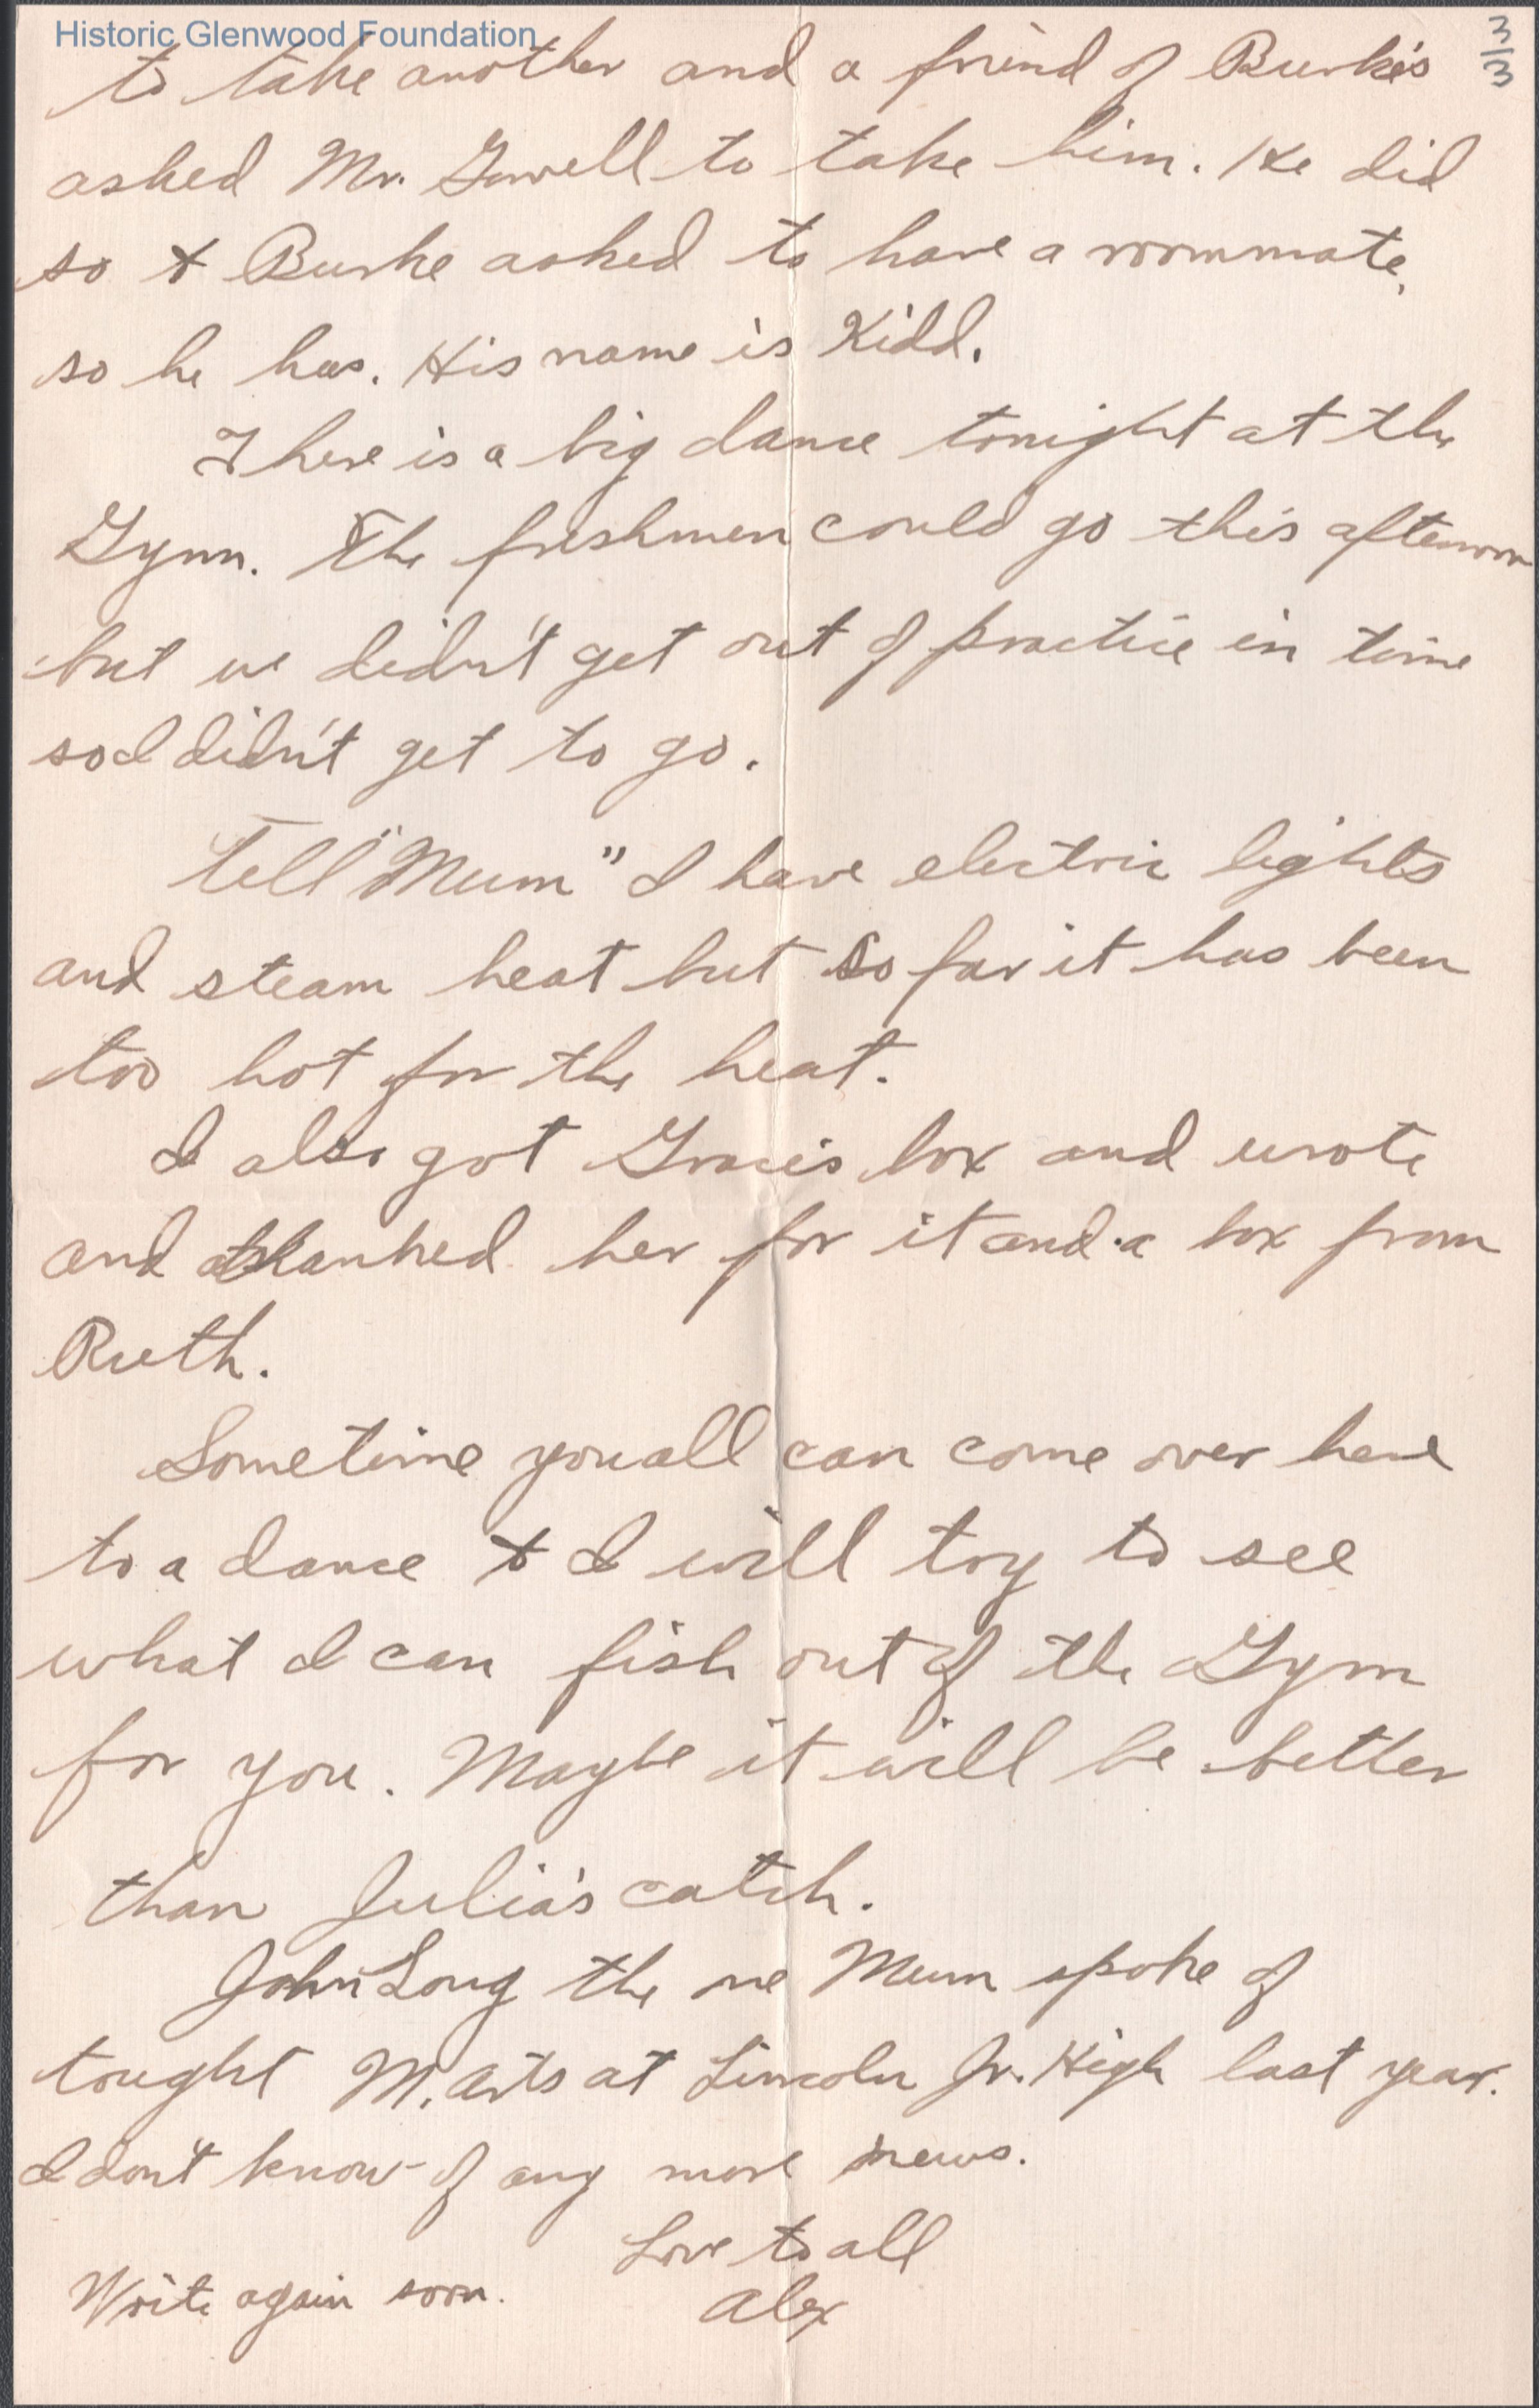 Historic Glenwood Foundation
3/3
to take another and a friend of Burke's
asked Mr. Gowell to take him. He did
so & Burke asked to have a roommate,
so he has. His name is Kidd.
There is a big dance tonight at the
Gym. The freshmen could go this afternoon
but we didn't get out of practice in time
so I didn't get to go.
Tell "Mum" I have electric lights
and steam heat but so far it has been
too hot for the heat.
I also got Grace's box and wrote
and thanked her for it and a box from
Ruth.
Sometime you all can come over here
to a dance & I will try to see
what I can fish out of the Gym
for you. Maybe it will be better
than Julia's catch.
John Long the one Mum spoke of
tought M. Arts at Lincoln Jr. High last year.
I don't know of any more news.
Love to all
Write again soon.
Alex